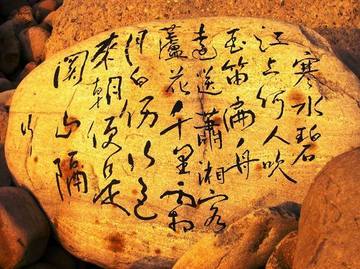 寒水碧
江上何人吹
玉笛扁舟
遠送瀟湘客
蘆花千里霜
月白傷行色
來朝便是
関山隔